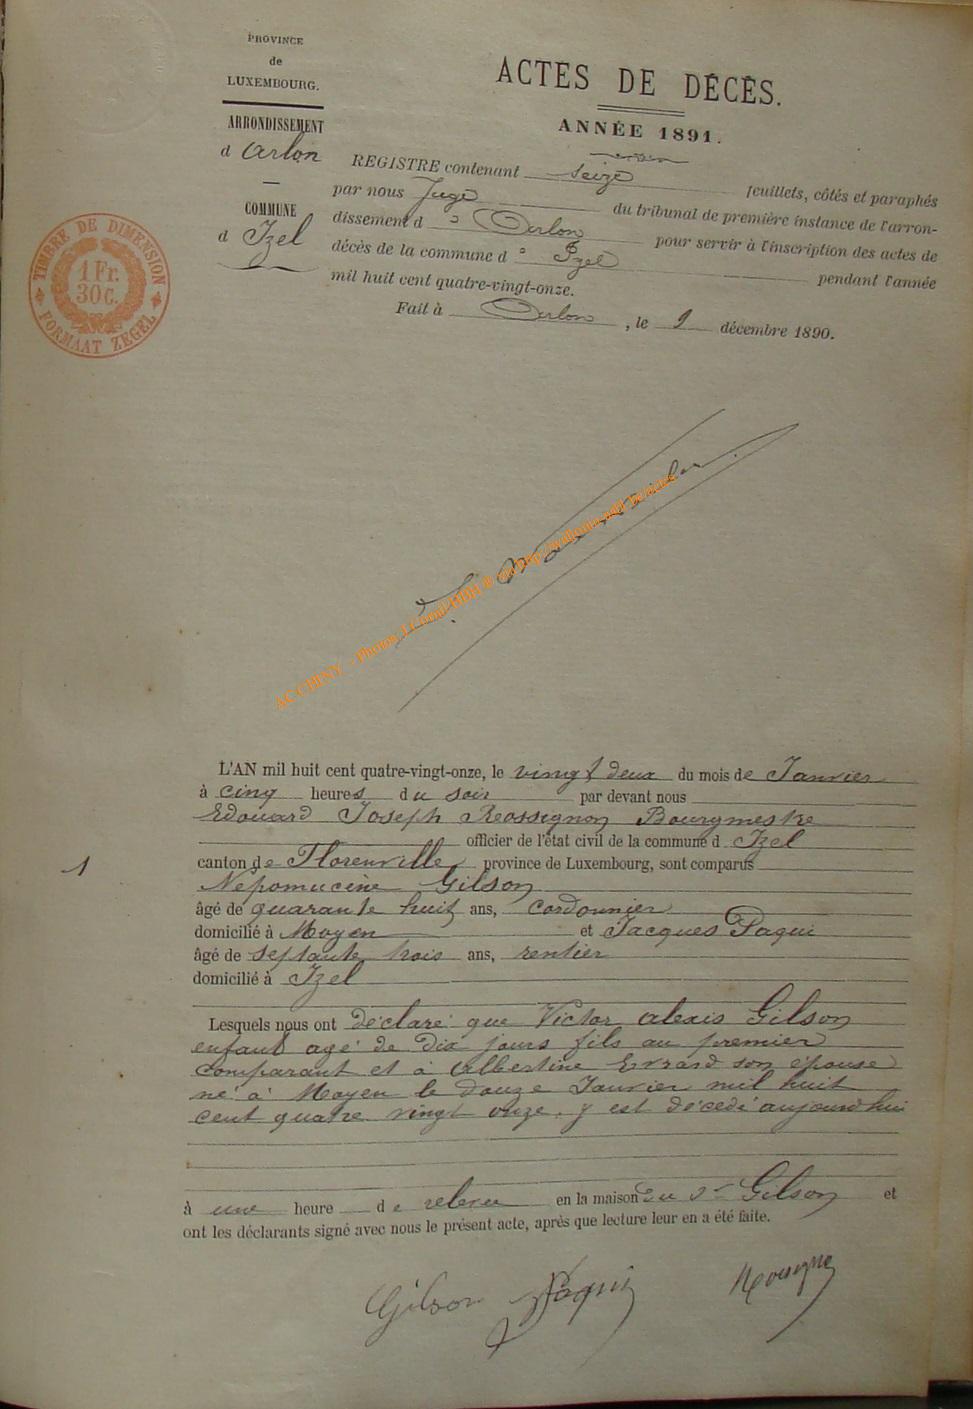 PROVINCE
de
LUXEMBOURG.
ARRONDISSEMENT
d Arlon
COMMUNE
d Izel
TIMBRE DE DIMENSION
1 Fr.
30 C.
FORMAAT ZEGEL
ACTES DE DÉCÈS.
ANNÉE 1891.
REGISTRE contenant seize feuillets, côtés et paraphés
par nous Juge du tribunal de première instance de l'arron-
dissement d' Arlon pour servir à l'inscription des actes de
décès de la commune d' Izel pendant l'année
mil huit cent quatre-vingt-onze.
Fait à Arlon, le 9 décembre 1890.
AC CHINY - Photos
1
L'AN mil huit cent quatre-vingt-onze, le vingt deux du mois de Janvier
à cinq heures du soir par devant nous
Edouard Joseph Rossignon Bourgmestre
officier de l'état civil de la commune d Izel
canton de Florenville province de Luxembourg, sont comparus
Népomucène Gilson
âgé de quarante huit ans, cordonnier
domicilié à Moyen et Jacques Paqui
âgé de septante trois ans, rentier
domicilié à Izel
Lesquels nous ont déclaré que Victor alexis Gilson
enfant agé de dix jours fils au premier
comparant et à Albertine Evrard son épouse
né à Moyen le douze Janvier mil huit
cent quatre vingt onze, y est décédé aujourd'hui
à une heure de relevée en la maison du Sr Gilson et
ont les déclarants signé avec nous le présent acte, après que lecture leur en a été faite.
Gilson Paqui